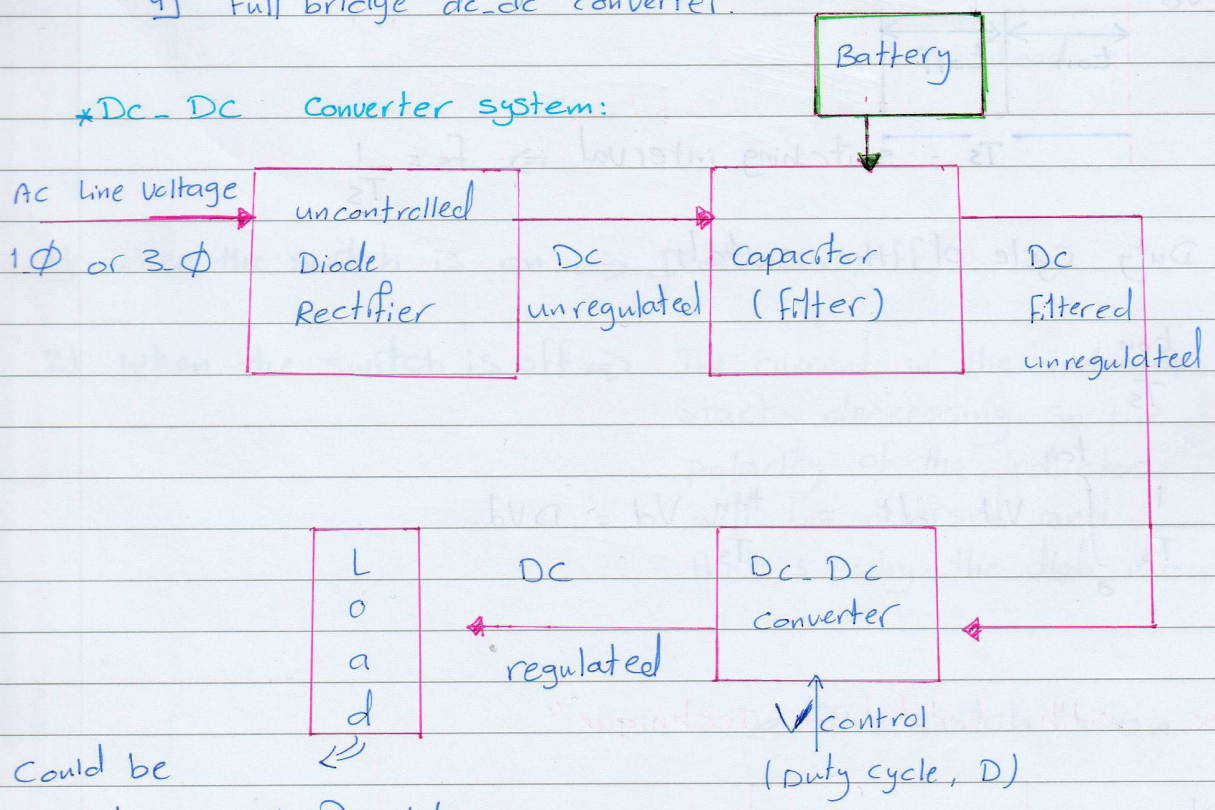 Full bridge dc-dc converter.
Battery
*Dc-DC Converter system:
AC Line Voltage
1-Ø or 3-Ø
uncontrolled
Diode
Rectifier
DC
unregulated
Capacitor
(filter)
DC
Filtered
unregulated
Dc-Dc
Converter
V control
(Duty cycle, D)
DC
regulated
L
o
a
d
Could be